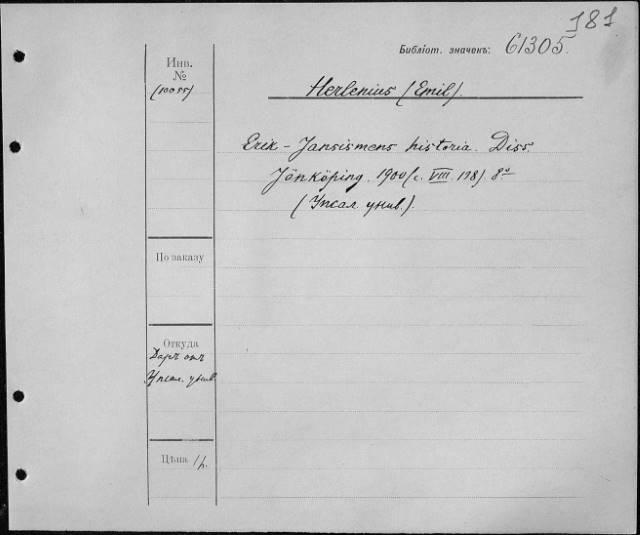 181
Библіот. значекъ: 61305.
Инв.
№
(10055)
Herlenius (Emil).
Erik-Jansismens historia. Diss.
Jönköping. 1900 (с. VIII. 118) 8°
(Упсал. унив.).
По заказу
Откуда
Даръ отъ
Упсал. унив.
Цѣна 1 р.